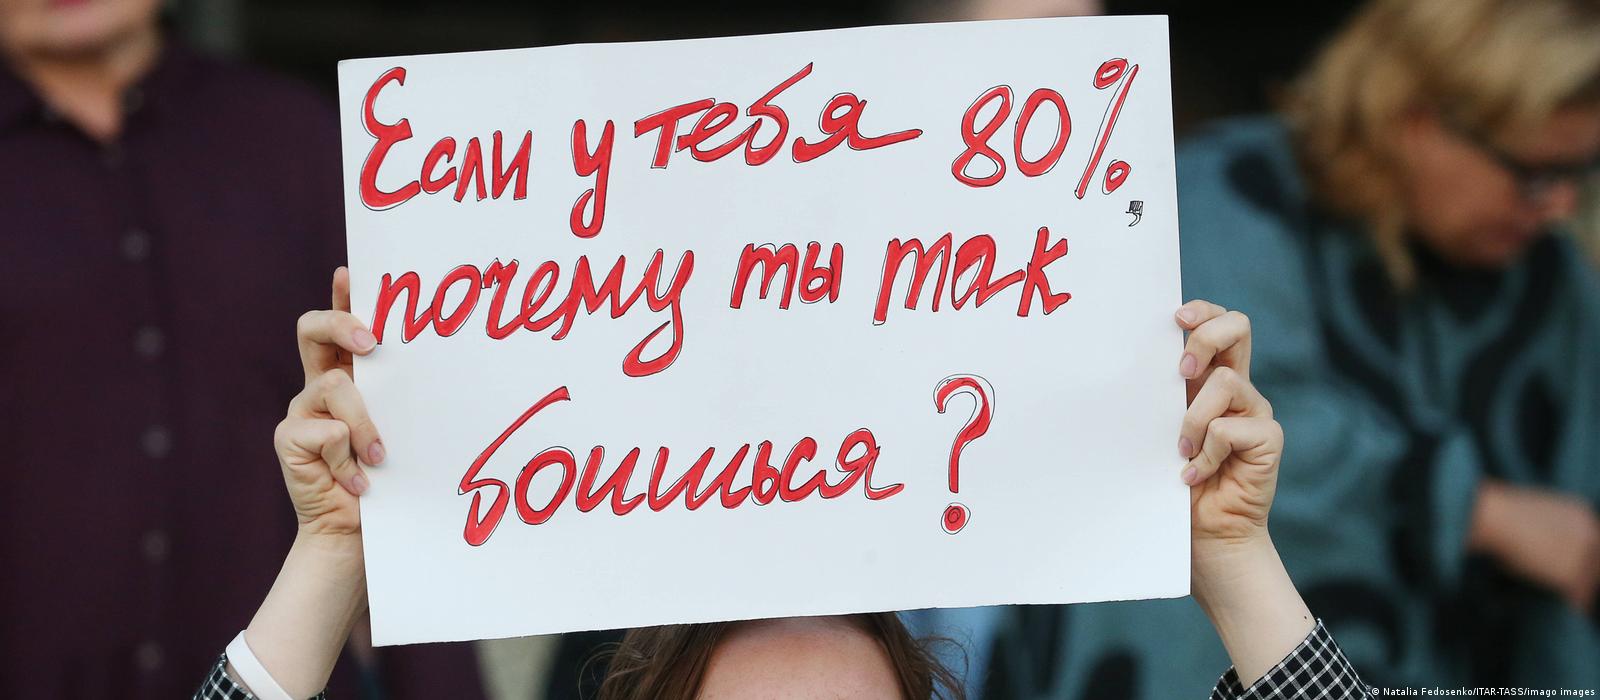 Если у тебя 80%,
почему ты так
боишься?
© Natalia Fedosenko/ITAR-TASS/imago images